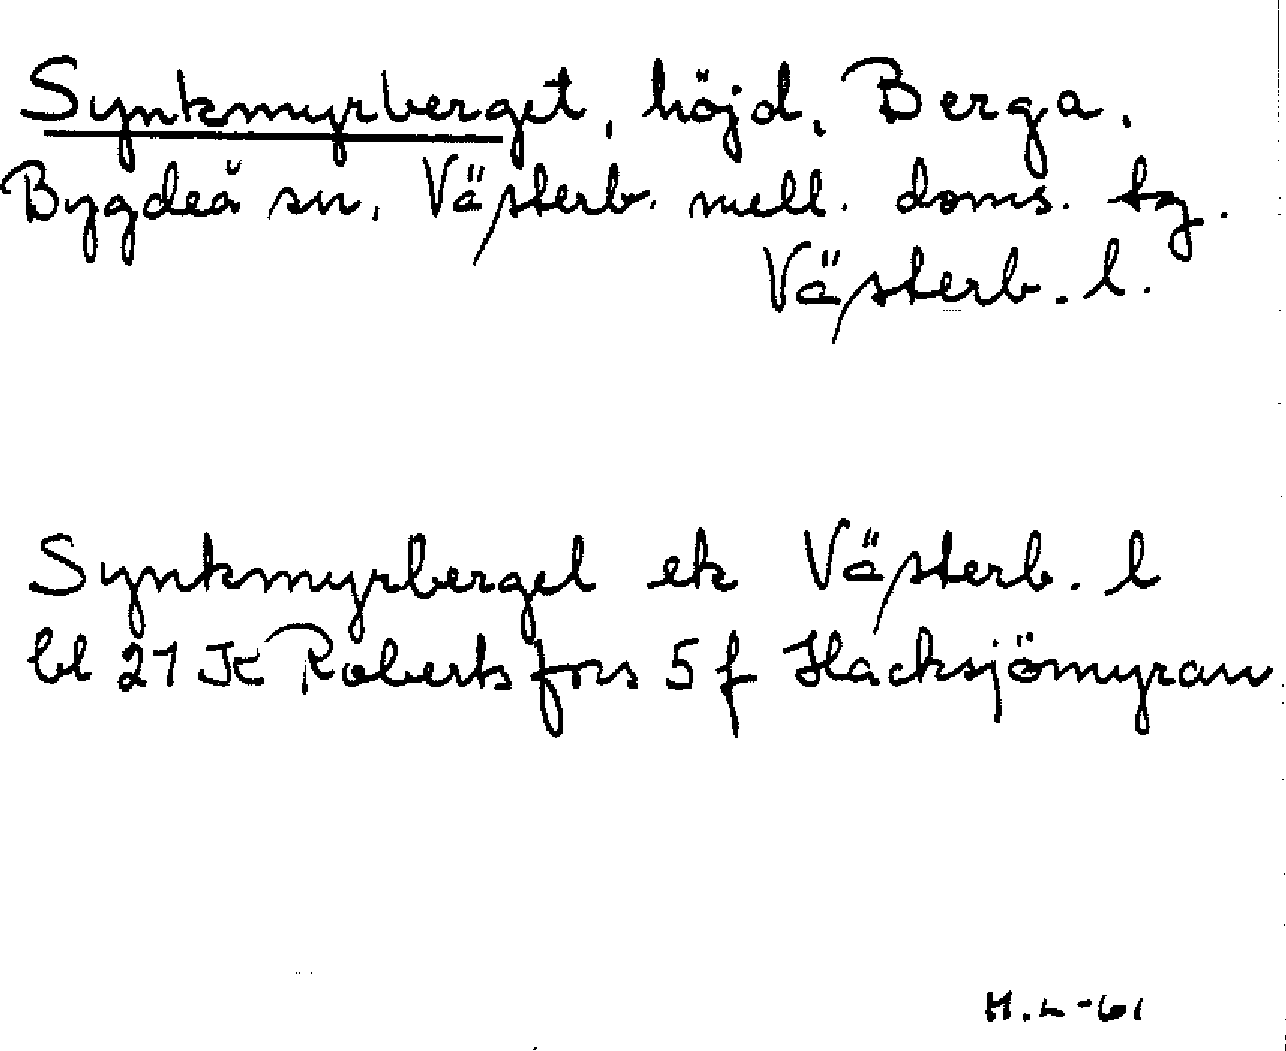 Synkmyrberget, höjd, Berga,
Bygdeå sn, Västerb. mell. doms. tg.
Västerb. l.
Synkmyrberget ek Västerb. l
bl 21 K Robertsfors 5 f Hacksjömyran
H.L-61